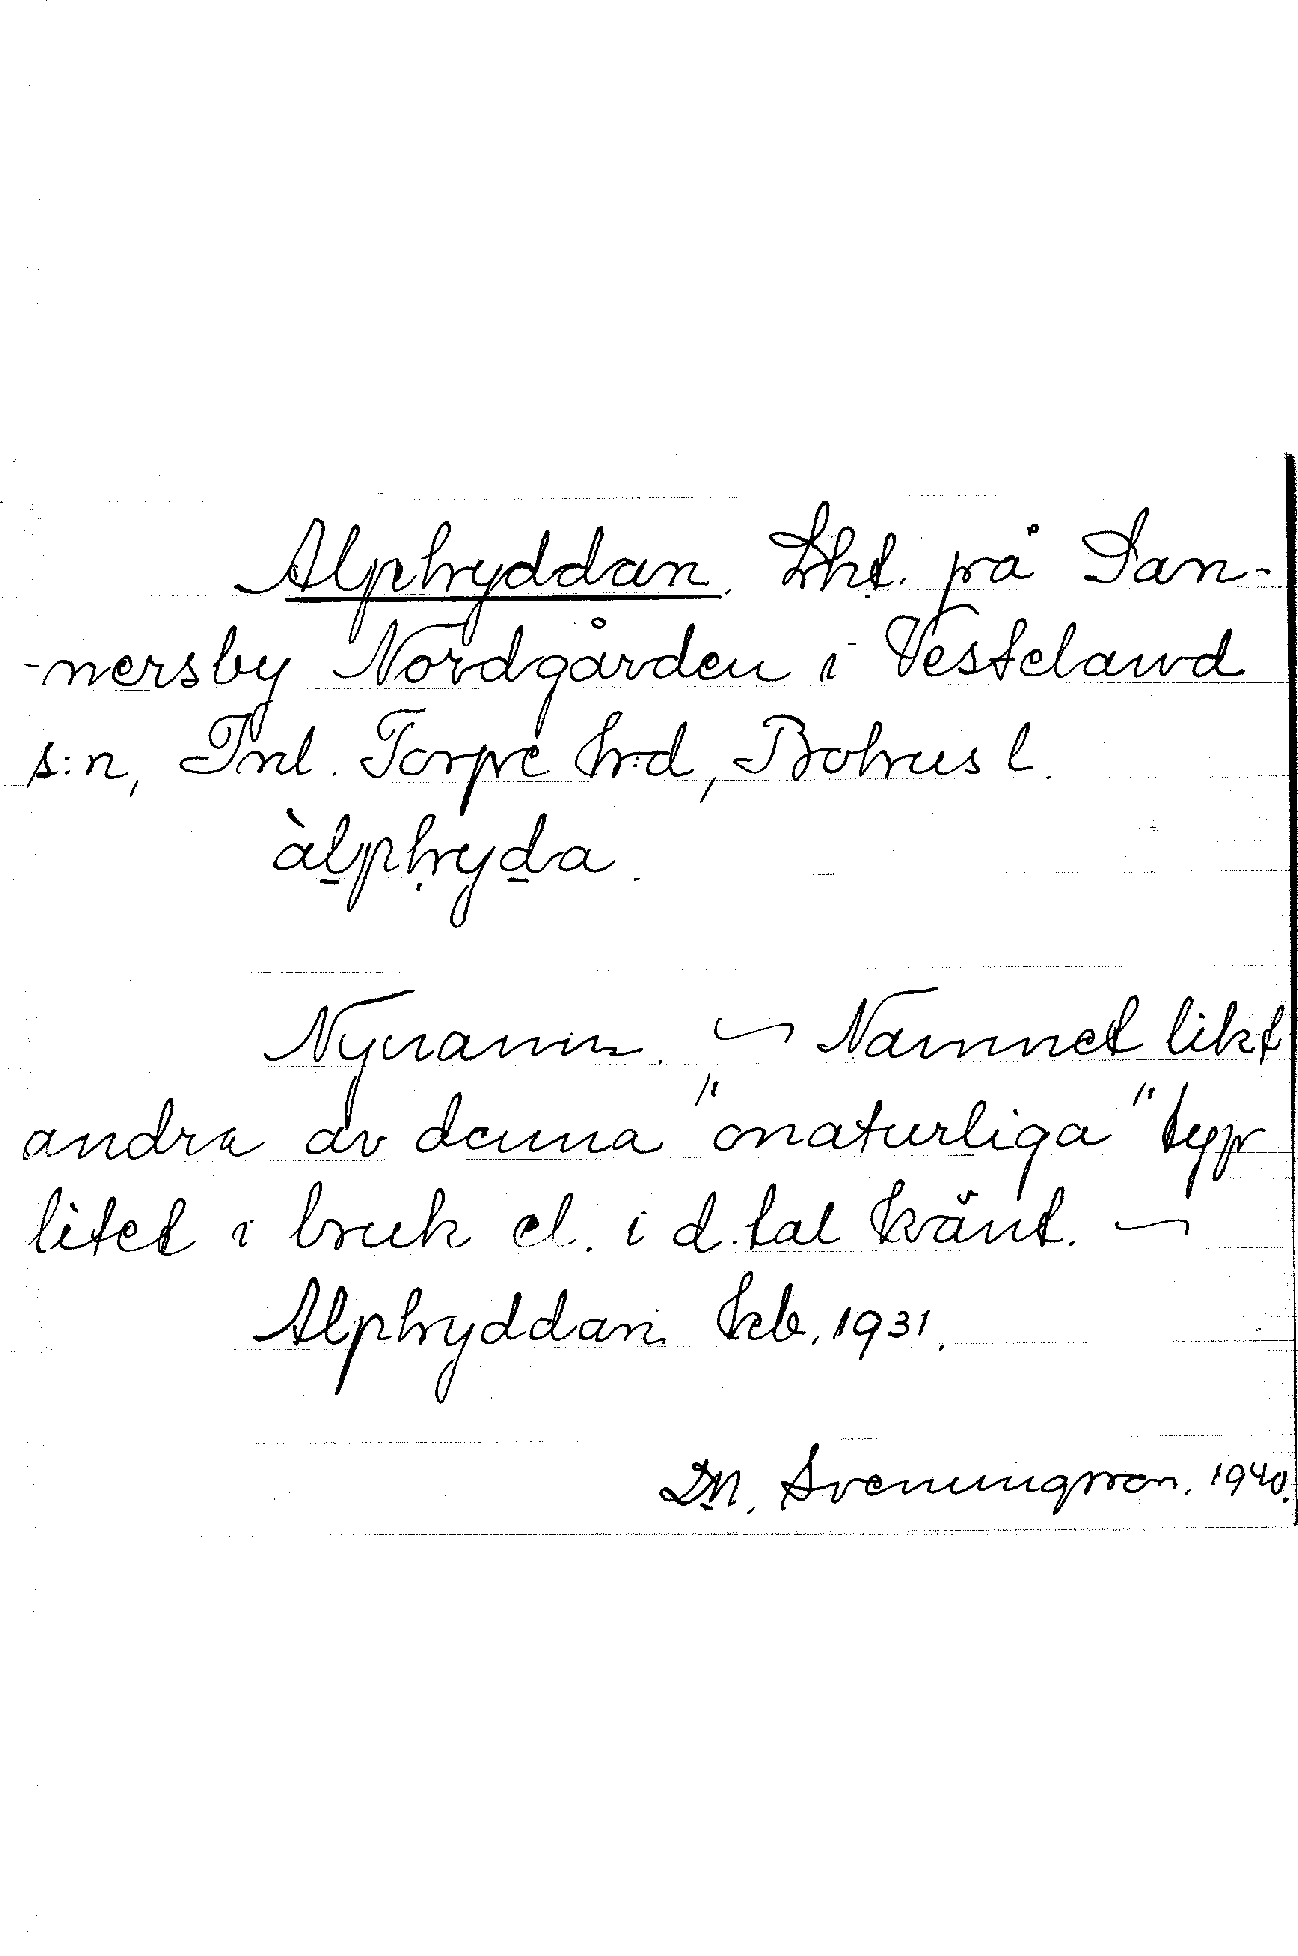 Alphyddan. Lht. på San-
-nersby Nordgården i Vesteland
s:n, Inl. Torpe hrd, Bohus l.
àlphyda.
Nynamn. ~ Namnet likt
andra av denna "onaturliga" typ
litet i bruk el. i d. tal känt. ~
Alphyddan kb. 1931.
D.N. Svenungsson. 1940.